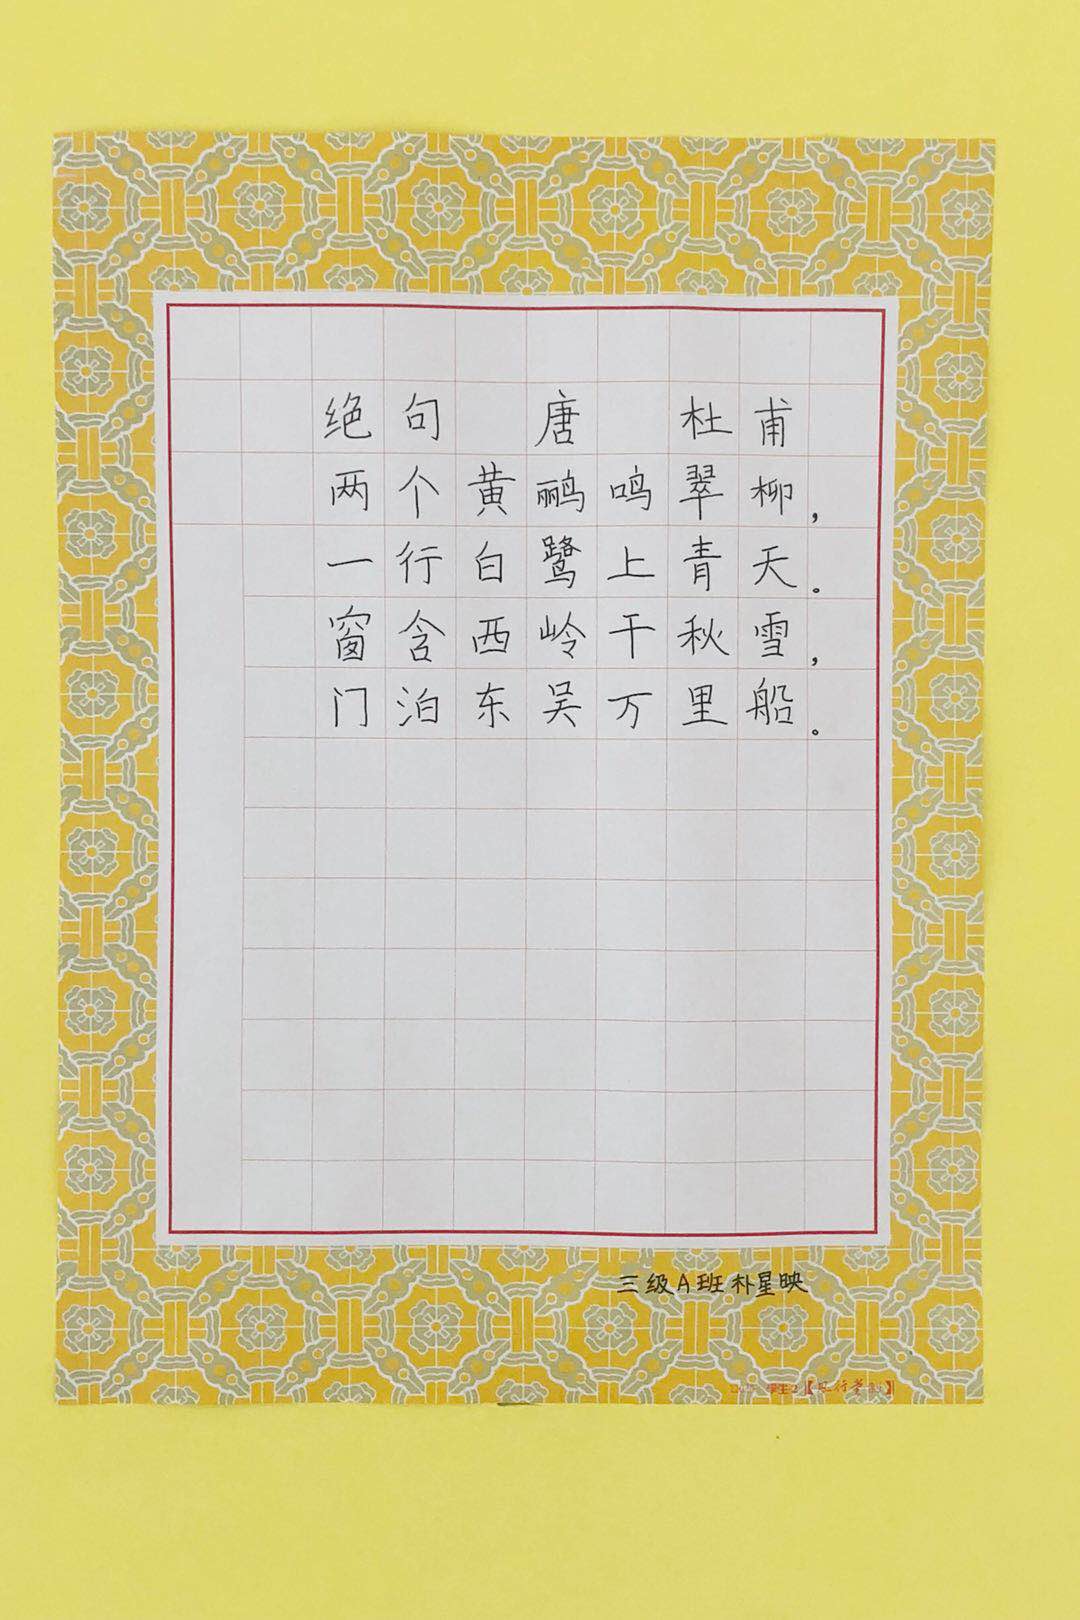 绝句 唐 杜甫
两个黄鹂鸣翠柳，
一行白鹭上青天。
窗含西岭千秋雪，
门泊东吴万里船。
三级A班朴星映